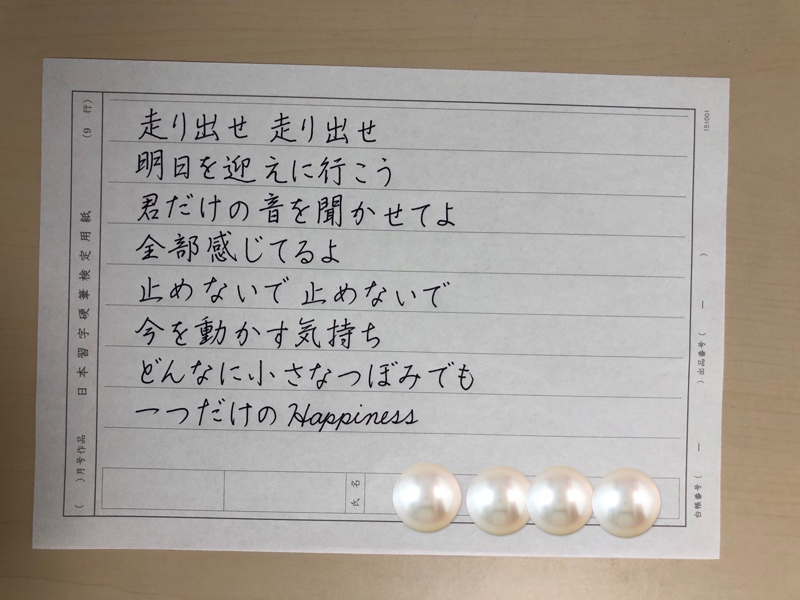 走り出せ 走り出せ
明日を迎えに行こう
君だけの音を聞かせてよ
全部感じてるよ
止めないで 止めないで
今を動かす気持ち
どんなに小さなつぼみでも
一つだけのHappiness
氏名
(9 行)
日本習字硬筆検定用紙
( )月号作品
151001
)出品番号( ー )
台帳番号( ー